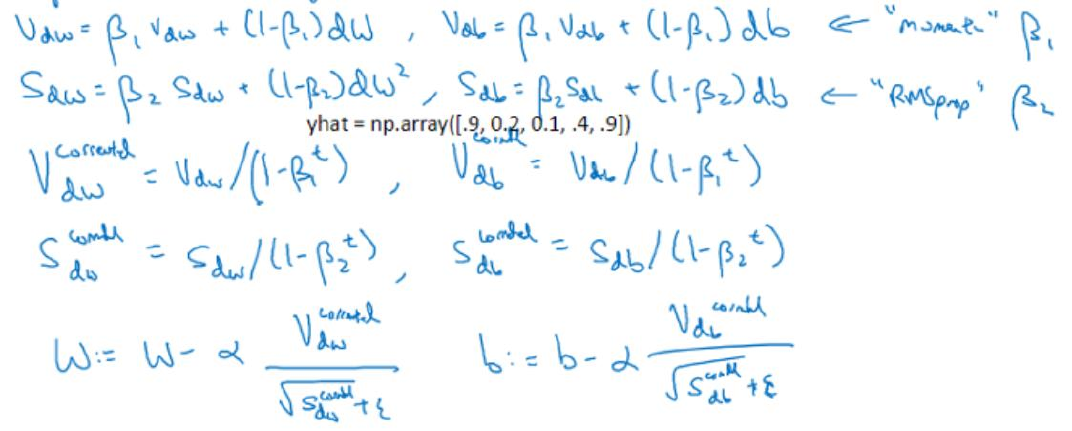 Vdw = β₁ Vdw + (1-β₁)dW , Vdb = β₁ Vdb + (1-β₁) db ← "moment" β₁
Sdw = β₂ Sdw + (1-β₂)dW² , Sdb = β₂ Sdb + (1-β₂) db ← "RMSprop" β₂
yhat = np.array([.9, 0.2, 0.1, .4, .9])
Vdw^corrected = Vdw/(1-β₁^t) , Vdb^corrected = Vdb/(1-β₁^t)
Sdw^corrected = Sdw/(1-β₂^t) , Sdb^corrected = Sdb/(1-β₂^t)
W := W - α Vdw^corrected / √Sdw^corrected + ε b := b - α Vdb^corrected / √Sdb^corrected + ε